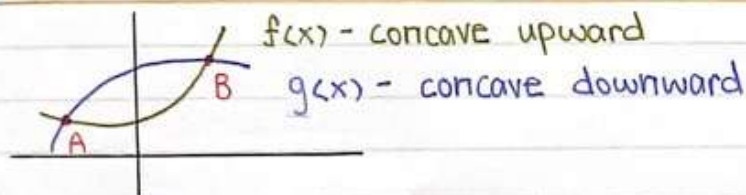 f(x) - concave upward
B g(x) - concave downward
A